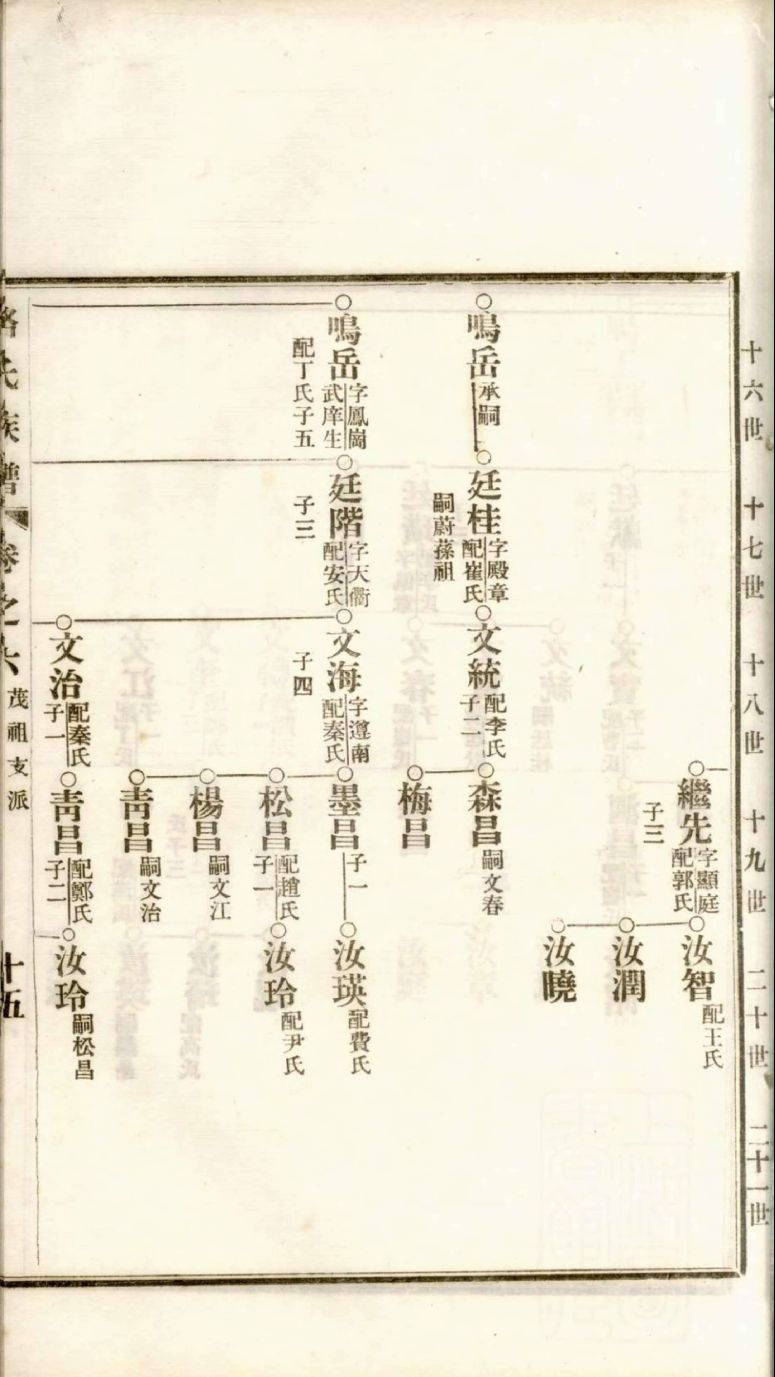 十六世
十七世
十八世
十九世
二十世
二十一世
繼先 字顯庭 配郭氏
子三
汝智 配王氏
汝潤
汝曉
鳴岳 承嗣
廷桂 字殿章 配崔氏
嗣蔚蓀祖
文統 配李氏 子二
森昌 嗣文春
梅昌
鳴岳 字鳳崗 武庠生
配丁氏子五
廷階 字天衢 配安氏
子三
文海 字遵南 配秦氏
子四
墨昌 子一
汝瑛 配費氏
松昌 配趙氏 子一
汝玲 配尹氏
楊昌 嗣文江
靑昌 嗣文治
文治 配秦氏 子一
靑昌 配鄭氏 子二
汝玲 嗣松昌
氏族譜 卷之六 茂祖支派 十五